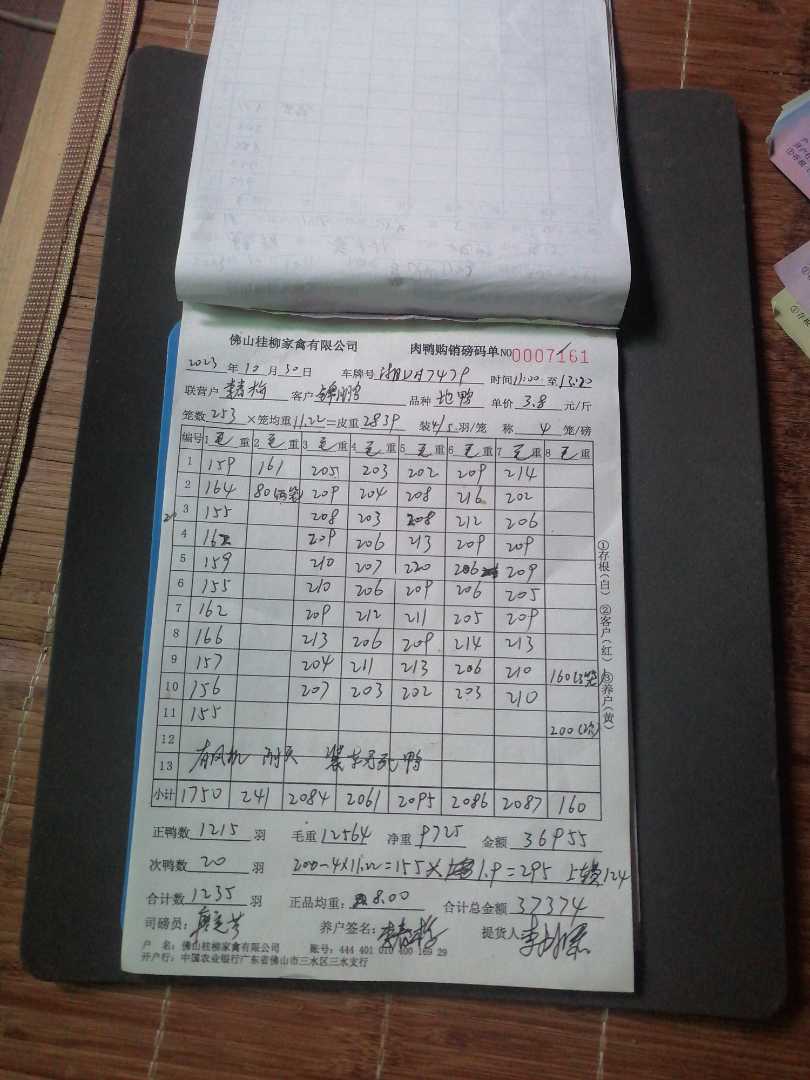 佛山桂柳家禽有限公司 肉鸭购销磅码单NO 0007161
2023 年 10 月 30 日 车牌号 7479 时间 11:00 至 13:20
联营户 客户 品种 地鸭 单价 3.8 元/斤
笼数 253 ×笼均重 11.22 =皮重 2839 装 4/5 羽/笼 称 4 笼/磅
编号 1 毛 重 2 毛 重 3 毛 重 4 毛 重 5 毛 重 6 毛 重 7 毛 重 8 毛 重
1 159 161 205 203 202 209 214
2 164 80 209 204 208 216 202
3 155 208 203 208 212 206
4 209 206 213 209 209
5 159 210 207 220 206 209
6 155 210 206 209 206 205
7 162 209 212 211 205 209
8 166 213 206 209 214 213
9 157 204 211 213 206 210 160
10 156 207 203 202 203 210
11 155 200(次)
12
13 有风机 装车另死鸭
小计 1750 241 2084 2061 2095 2086 2087 160
正鸭数 1215 羽 毛重 12564 净重 9725 金额 36955
次鸭数 20 羽 200-4×11.22=155× 1.9=295 124
合计数 1235 羽 正品均重: 8.00 合计总金额 37374
司磅员: 养户签名: 提货人
户 名: 佛山桂柳家禽有限公司 账号: 444 401 010 400 169 29
开户行: 中国农业银行广东省佛山市三水区三水支行
①存根(白) ②客户(红) ③养户(黄)